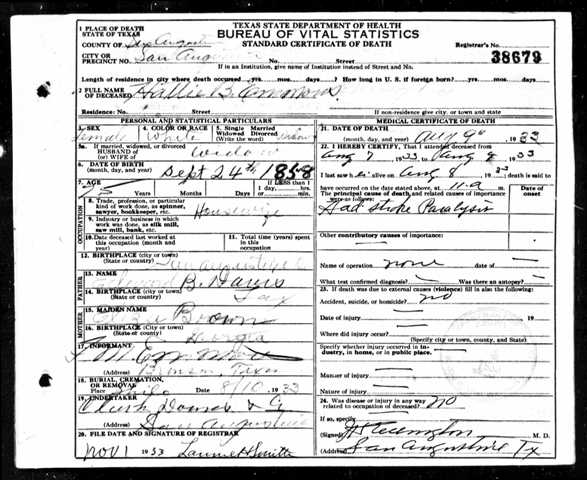 TEXAS STATE DEPARTMENT OF HEALTH
BUREAU OF VITAL STATISTICS
STANDARD CERTIFICATE OF DEATH
1 PLACE OF DEATH
STATE OF TEXAS
COUNTY OF San Augustine
CITY OR
PRECINCT NO. San Aug
Registrar's No.
38679
If in an Institution, give name of Institution instead of Street and No.
Length of residence in city where death occurred yrs. mos. days. How long in U. S. if foreign born? yrs. mos. days.
2 FULL NAME
OF DECEASED Hallie B. Emmons
Residence: No.
If non-residence give city, or town and state
PERSONAL AND STATISTICAL PARTICULARS
3. SEX
Female
4. COLOR OR RACE
White
5. Single
Widowed
Married
Divorced
5a. If married, widowed, or divorced
HUSBAND OF
(or) WIFE OF
widow
6. DATE OF BIRTH
(month, day, and year) Sept 24th 1858
7. AGE
75 Years Months Days
If LESS than 1
Hours Min.
OCCUPATION
8. Trade, profession, or particular
kind of work done, as spinner,
sawyer, bookkeeper, etc.
Housewife
9. Industry or business in which
work was done, as silk mill,
saw mill, bank, etc.
10. Date deceased last worked at
this occupation (month and
year)
11. Total time (years)
spent in this
occupation
12. BIRTHPLACE (city or town)
(State or country)
FATHER
13. NAME
B. Davis
14. BIRTHPLACE (city or town)
(State or country)
MOTHER
15. MAIDEN NAME
Brown
16. BIRTHPLACE (city or town)
(State or country)
Georgia
17. INFORMANT
(Address)
Texas
18. BURIAL, CREMATION,
OR REMOVAL
Place
Date 8/10 1933
19. UNDERTAKER
(Address) San Augustine
20. FILE DATE AND SIGNATURE OF REGISTRAR
Nov 1 1933
Smith
MEDICAL CERTIFICATE OF DEATH
21. DATE OF DEATH
(month, day, and year) Aug 9 1933
22. I HEREBY CERTIFY, That I attended deceased from
Aug 7 1933 to Aug 8 1933
I last saw h er alive on Aug 8 1933 death is said to
have occurred on the date stated above, at m.
The principal cause of death and related causes of importance
were as follows:
Date of
onset
Had stroke Paralysis
Other contributory causes of importance:
Name of operation none date of
What test confirmed diagnosis? Was there an autopsy?
23. If death was due to external causes (violence) fill in also the following:
Accident, suicide, or homicide? no
Date of injury 19
Where did injury occur?
(Specify city or town, county, and State)
Specify whether injury occurred in in-
dustry, in home, or in public place.
Manner of injury
Nature of injury
24. Was disease or injury in any way
related to occupation of deceased? no
If so, specify
(Signed) M. D.
(Address) San Augustine Tx